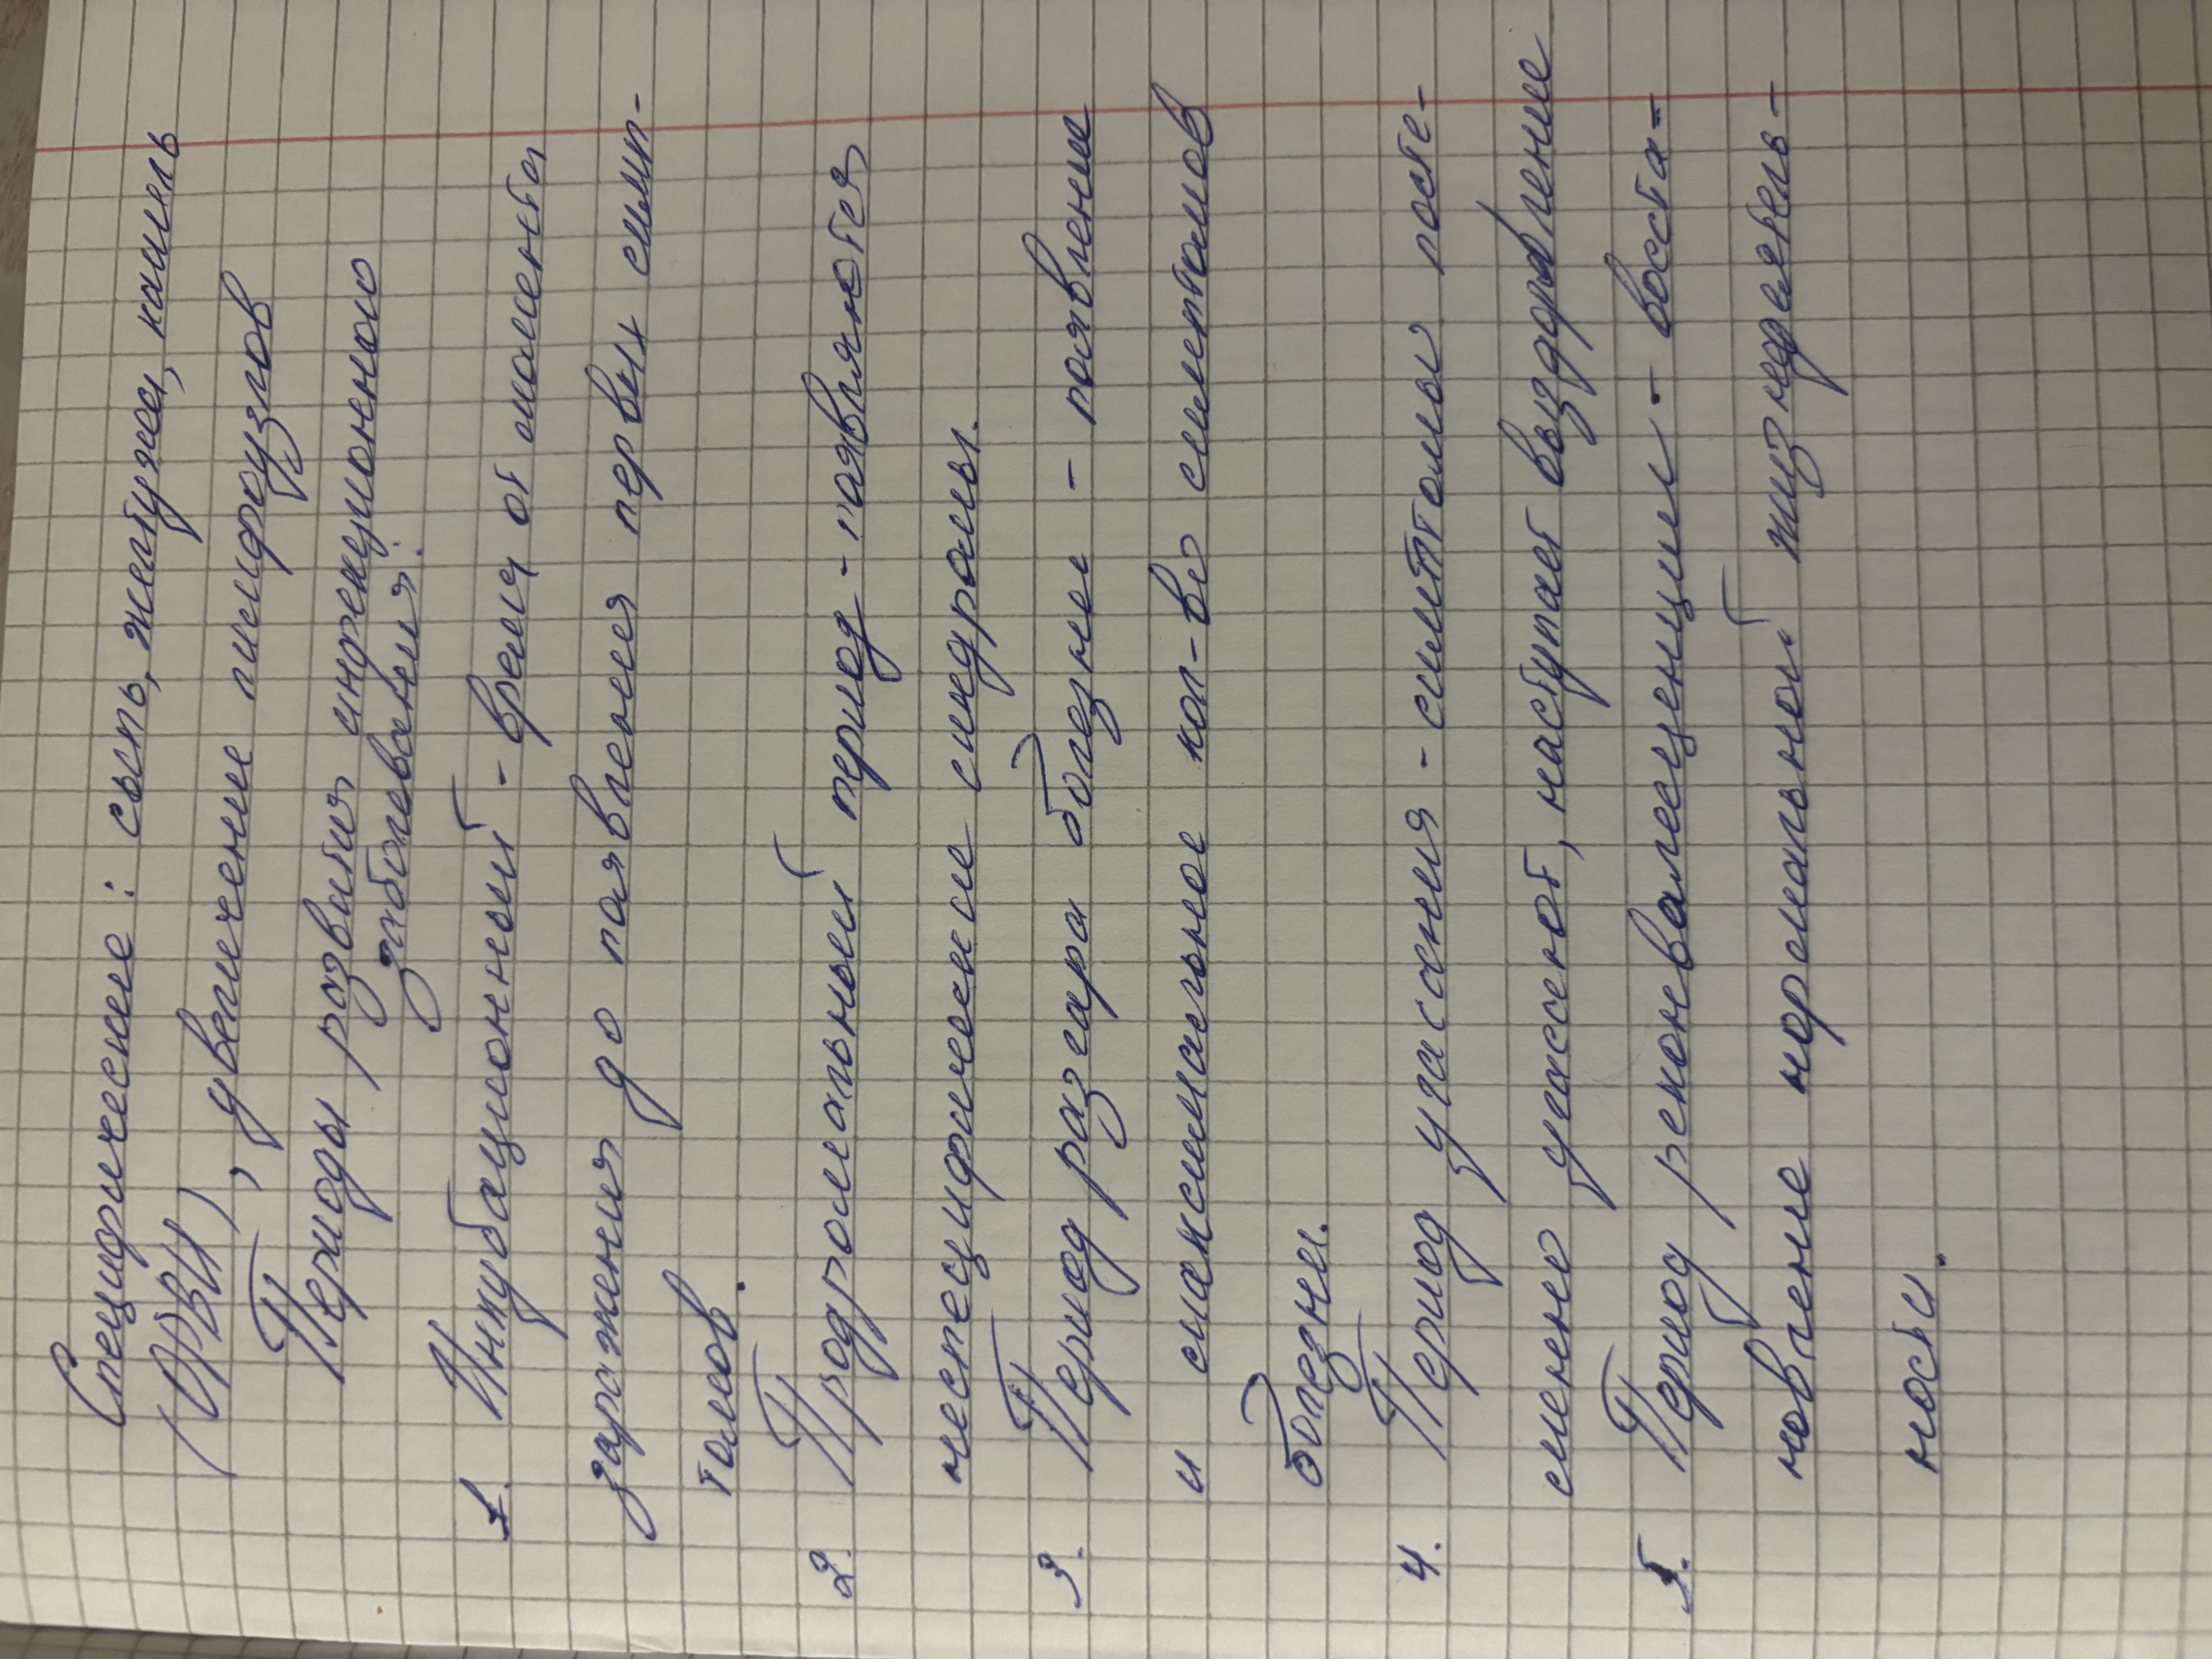 Специфические: сыпь, желтуха, кашель
(ОРВИ), увеличение лимфоузлов
Периоды развития инфекционного
заболевания:
1. Инкубационный - время от момента
заражения до появления первых симп-
томов.
2. Продромальный период - появляются
неспецифические синдромы.
3. Период разгара болезни - появление
и максимальное кол-во симптомов
болезни.
4. Период угасания - симптомы посте-
пенно угасают, наступает выздоровление
5. Период реконвалесценции - восста-
новление нормальной жизнедеятель-
ности.